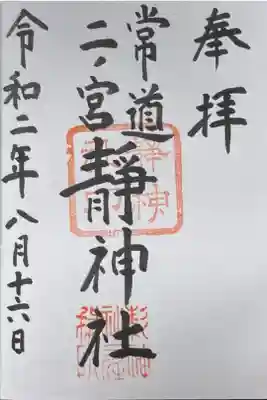 奉拝
常道
二ノ宮靜神社
令和二年八月十六日